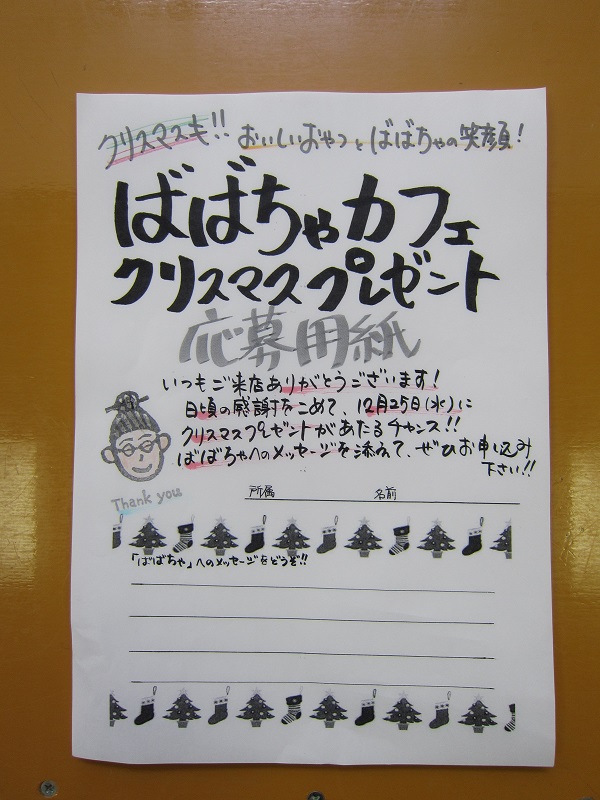 クリスマスも!! おいしいおやつとばばちゃの笑顔!
ばばちゃカフェ
クリスマスプレゼント
応募用紙
いつもご来店ありがとうございます!
日頃の感謝をこめて、12月25日(水)に
クリスマスプレゼントがあたるチャンス!!
ばばちゃへのメッセージを添えて、ぜひお申込み
下さい!!
Thank you
所属 名前
「ばばちゃ」へのメッセージをどうぞ!!